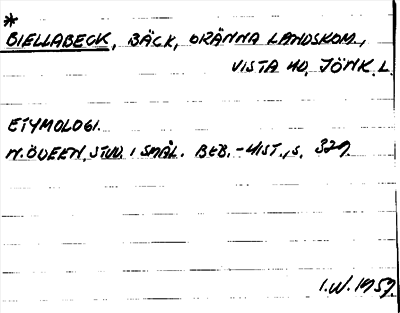 *
BIELLABECK, BÄCK, GRÄNNA LANDSKOM.,
VISTA HD, JÖNK. L.
ETYMOLOGI.
N. ÖDEEN, STUD. I SMÅL. BEB.-HIST., S. 329.
I.W. 1959.